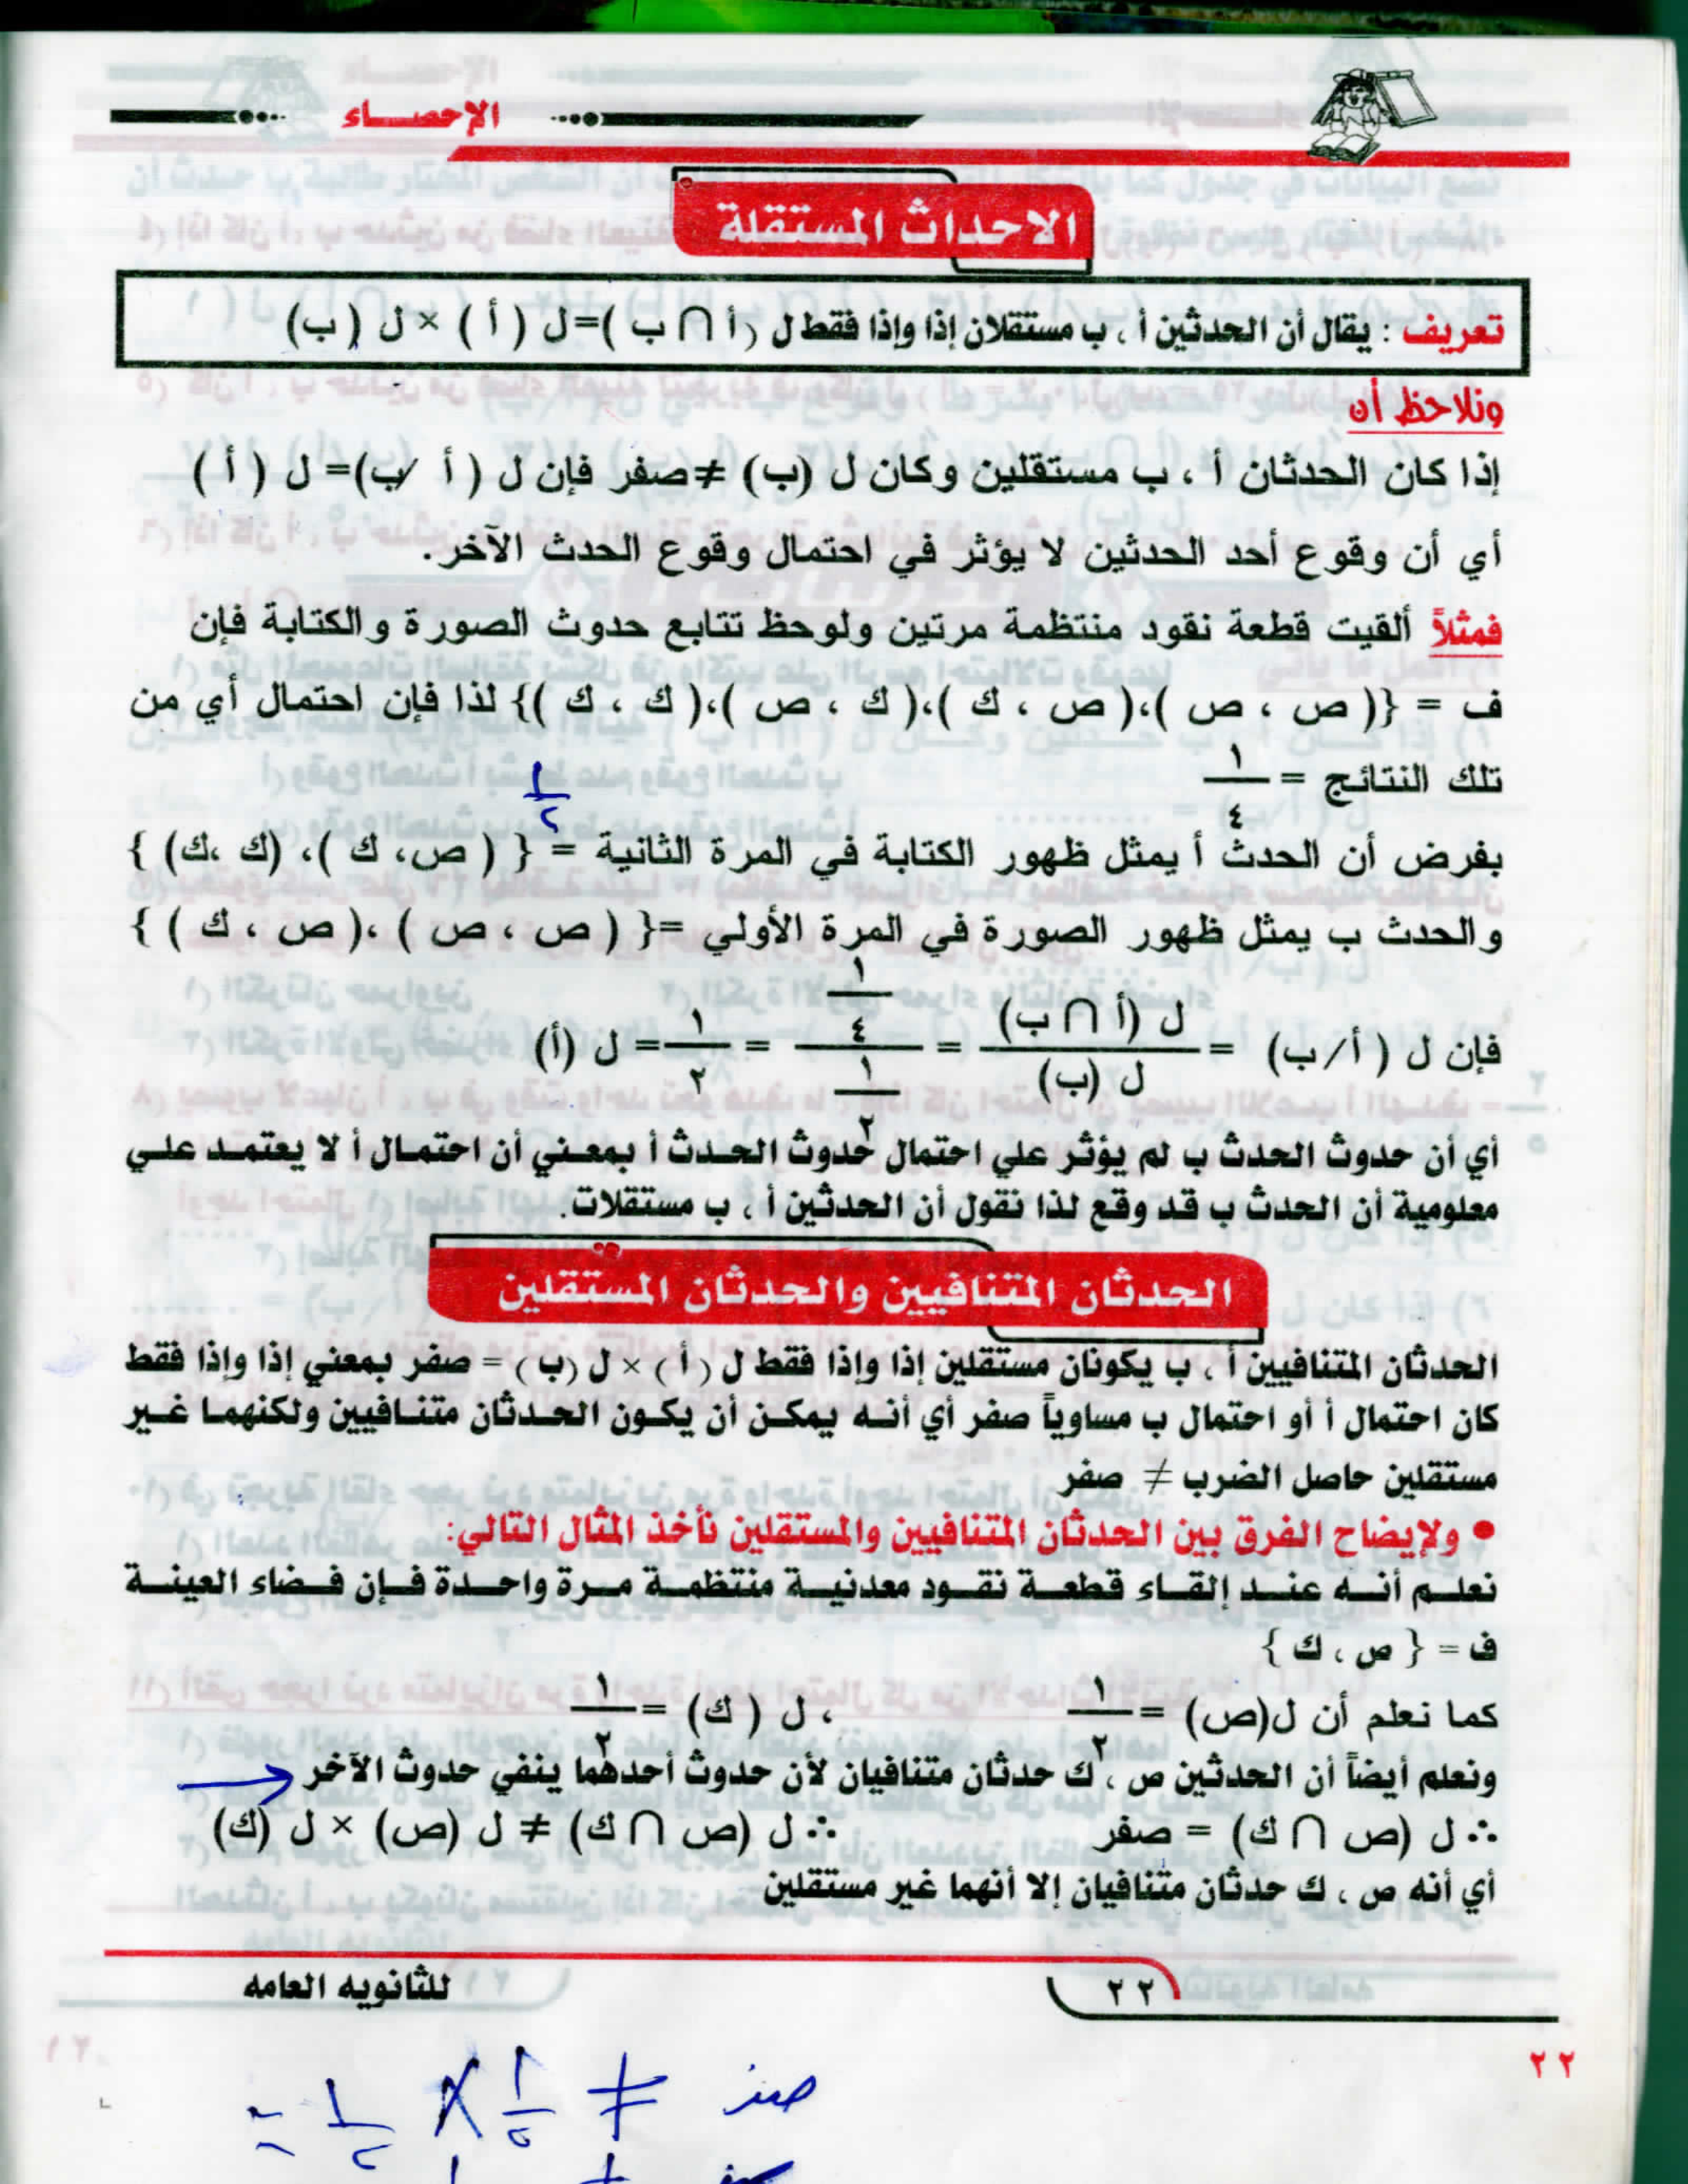 الإحصاء
الاحداث المستقلة
تعريف : يقال أن الحدثين أ ، ب مستقلان إذا وإذا فقط ل ( أ ∩ ب )= ل ( أ ) × ل ( ب)
ونلاحظ أن
إذا كان الحدثان أ ، ب مستقلين وكان ل (ب) ≠ صفر فإن ل ( أ / ب)= ل ( أ )
أي أن وقوع أحد الحدثين لا يؤثر في احتمال وقوع الحدث الآخر.
فمثلاً ألقيت قطعة نقود منتظمة مرتين ولوحظ تتابع حدوث الصورة والكتابة فإن
ف = {( ص ، ص )،( ص ، ك )،( ك ، ص )،( ك ، ك )} لذا فإن احتمال أي من
تلك النتائج = ١/٤
١/٢
بفرض أن الحدث أ يمثل ظهور الكتابة في المرة الثانية = { ( ص، ك )، (ك ،ك) }
والحدث ب يمثل ظهور الصورة في المرة الأولي ={ ( ص ، ص ) ،( ص ، ك ) }
فإن ل ( أ/ب) = ل (أ ∩ ب)/ل (ب) = ١/٤/١/٢ = ١/٢ = ل (أ)
أي أن حدوث الحدث ب لم يؤثر علي احتمال حدوث الحدث أ بمعني أن احتمال أ لا يعتمد علي
معلومية أن الحدث ب قد وقع لذا نقول أن الحدثين أ ، ب مستقلات.
الحدثان المتنافيين والحدثان المستقلين
الحدثان المتنافيين أ ، ب يكونان مستقلين إذا وإذا فقط ل ( أ ) × ل (ب ) = صفر بمعني إذا وإذا فقط
كان احتمال أ أو احتمال ب مساوياً صفر أي أنه يمكن أن يكون الحدثان متنافيين ولكنهما غير
مستقلين حاصل الضرب ≠ صفر
• ولإيضاح الفرق بين الحدثان المتنافيين والمستقلين نأخذ المثال التالي:
نعلم أنه عند إلقاء قطعة نقود معدنية منتظمة مرة واحدة فإن فضاء العينة
ف = { ص ، ك }
كما نعلم أن ل(ص) = ١/٢ ، ل ( ك) = ١/٢
ونعلم أيضاً أن الحدثين ص ، ك حدثان متنافيان لأن حدوث أحدهما ينفي حدوث الآخر
∴ ل (ص ∩ ك) = صفر ∴ ل (ص ∩ ك) ≠ ل (ص) × ل (ك)
أي أنه ص ، ك حدثان متنافيان إلا أنهما غير مستقلين
٢٢ للثانويه العامه
٢٢
صفر ≠ ١/٢ × ١/٢ =